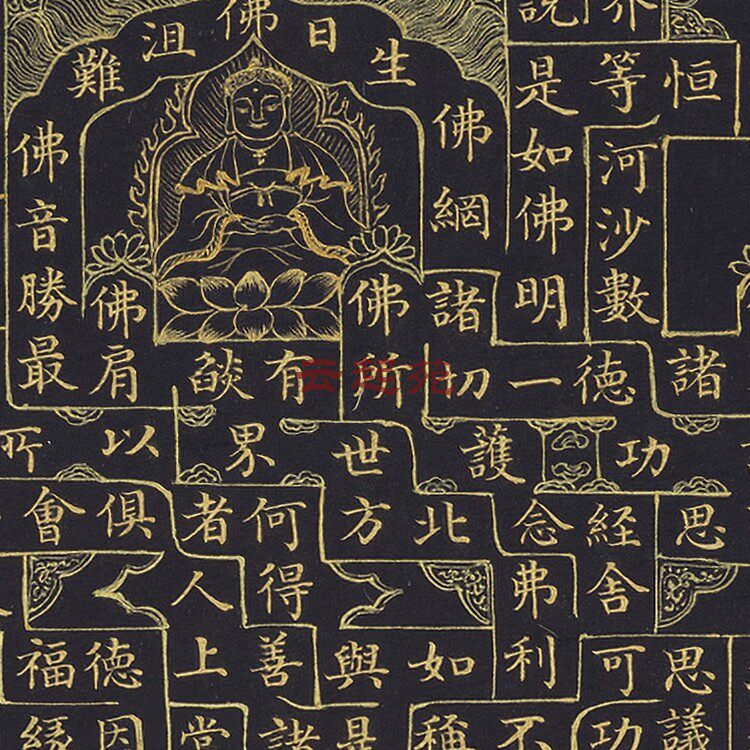 說
界
舍利弗北方世界有燄肩佛最勝音佛難沮佛日生佛網明佛如是等恒河沙數諸
思
功德一切諸佛所護念經
所以者何得與如是諸上善人俱會
福德因緣
稱
不可思議功
當